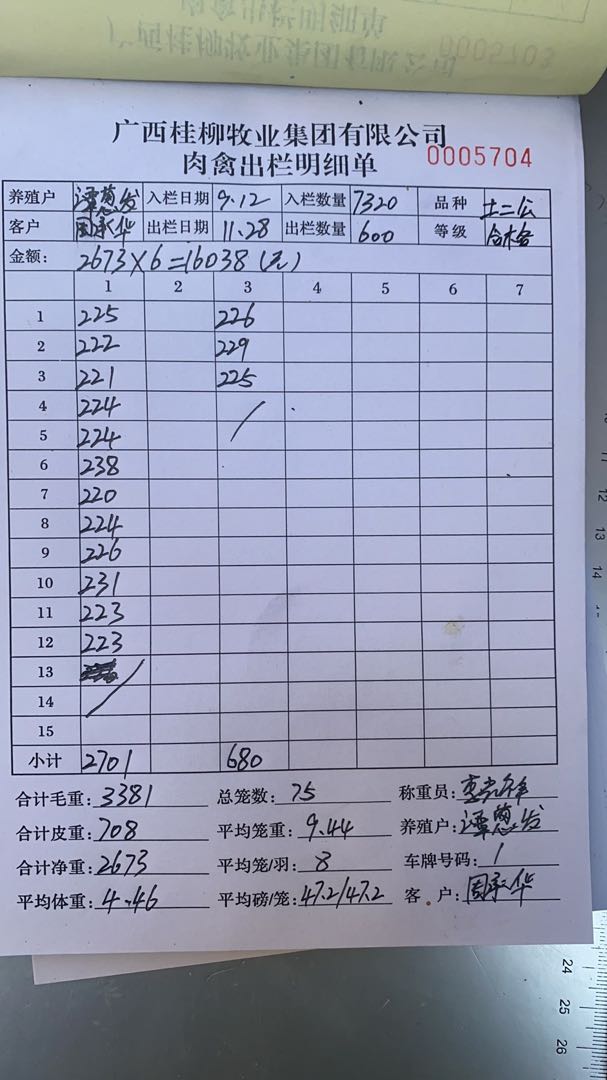 0005703
广西桂柳牧业集团有限公司
肉禽出栏明细单 0005704
养殖户 谭慧发 入栏日期 9.12 入栏数量 7320 品种 土二公
客户 周承华 出栏日期 11.28 出栏数量 600 等级 合格
金额: 2673×6=16038(元)
1 2 3 4 5 6 7
1 225 226
2 222 229
3 221 225
4 224
5 224
6 238
7 220
8 224
9 226
10 231
11 223
12 223
13
14
15
小计 2701 680
合计毛重: 3381 总笼数: 75 称重员:
合计皮重: 708 平均笼重: 9.44 养殖户: 谭慧发
合计净重: 2673 平均笼/羽: 8 车牌号码: 1
平均体重: 4.46 平均磅/笼: 47.2/47.2 客户: 周承华
11
12
13
14
24
25
26